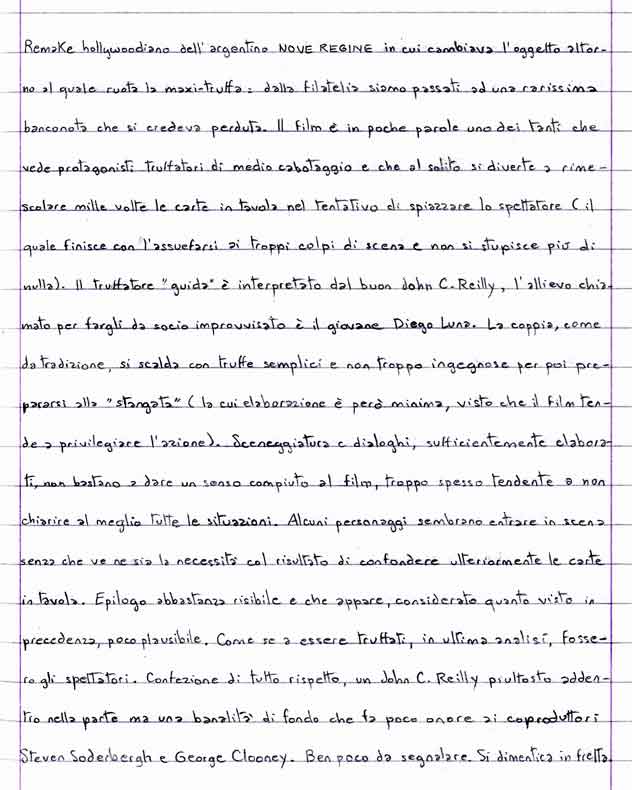 Remake hollywoodiano dell'argentino NOVE REGINE in cui cambiava l'oggetto attor-
no al quale ruota la maxi-truffa: dalla filatelia siamo passati ad una rarissima
banconota che si credeva perduta. Il film è in poche parole uno dei tanti che
vede protagonisti truffatori di medio cabotaggio e che al solito si diverte a rime-
scolare mille volte le carte in tavola nel tentativo di spiazzare lo spettatore (il
quale finisce con l'assuefarsi ai troppi colpi di scena e non si stupisce più di
nulla). Il truffatore "guida" è interpretato dal buon John C. Reilly, l'allievo chia-
mato per fargli da socio improvvisato è il giovane Diego Luna. La coppia, come
da tradizione, si scalda con truffe semplici e non troppo ingegnose per poi pre-
pararsi alla "stangata" (la cui elaborazione è però minima, visto che il film ten-
de a privilegiare l'azione). Sceneggiatura e dialoghi, sufficientemente elabora-
ti, non bastano a dare un senso compiuto al film, troppo spesso tendente a non
chiarire al meglio tutte le situazioni. Alcuni personaggi sembrano entrare in scena
senza che ve ne sia la necessità col risultato di confondere ulteriormente le carte
in tavola. Epilogo abbastanza risibile e che appare, considerato quanto visto in
precedenza, poco plausibile. Come se a essere truffati, in ultima analisi, fosse-
ro gli spettatori. Confezione di tutto rispetto, un John C. Reilly piuttosto adden-
tro nella parte ma una banalità di fondo che fa poco onore ai coproduttori
Steven Soderbergh e George Clooney. Ben poco da segnalare. Si dimentica in fretta.